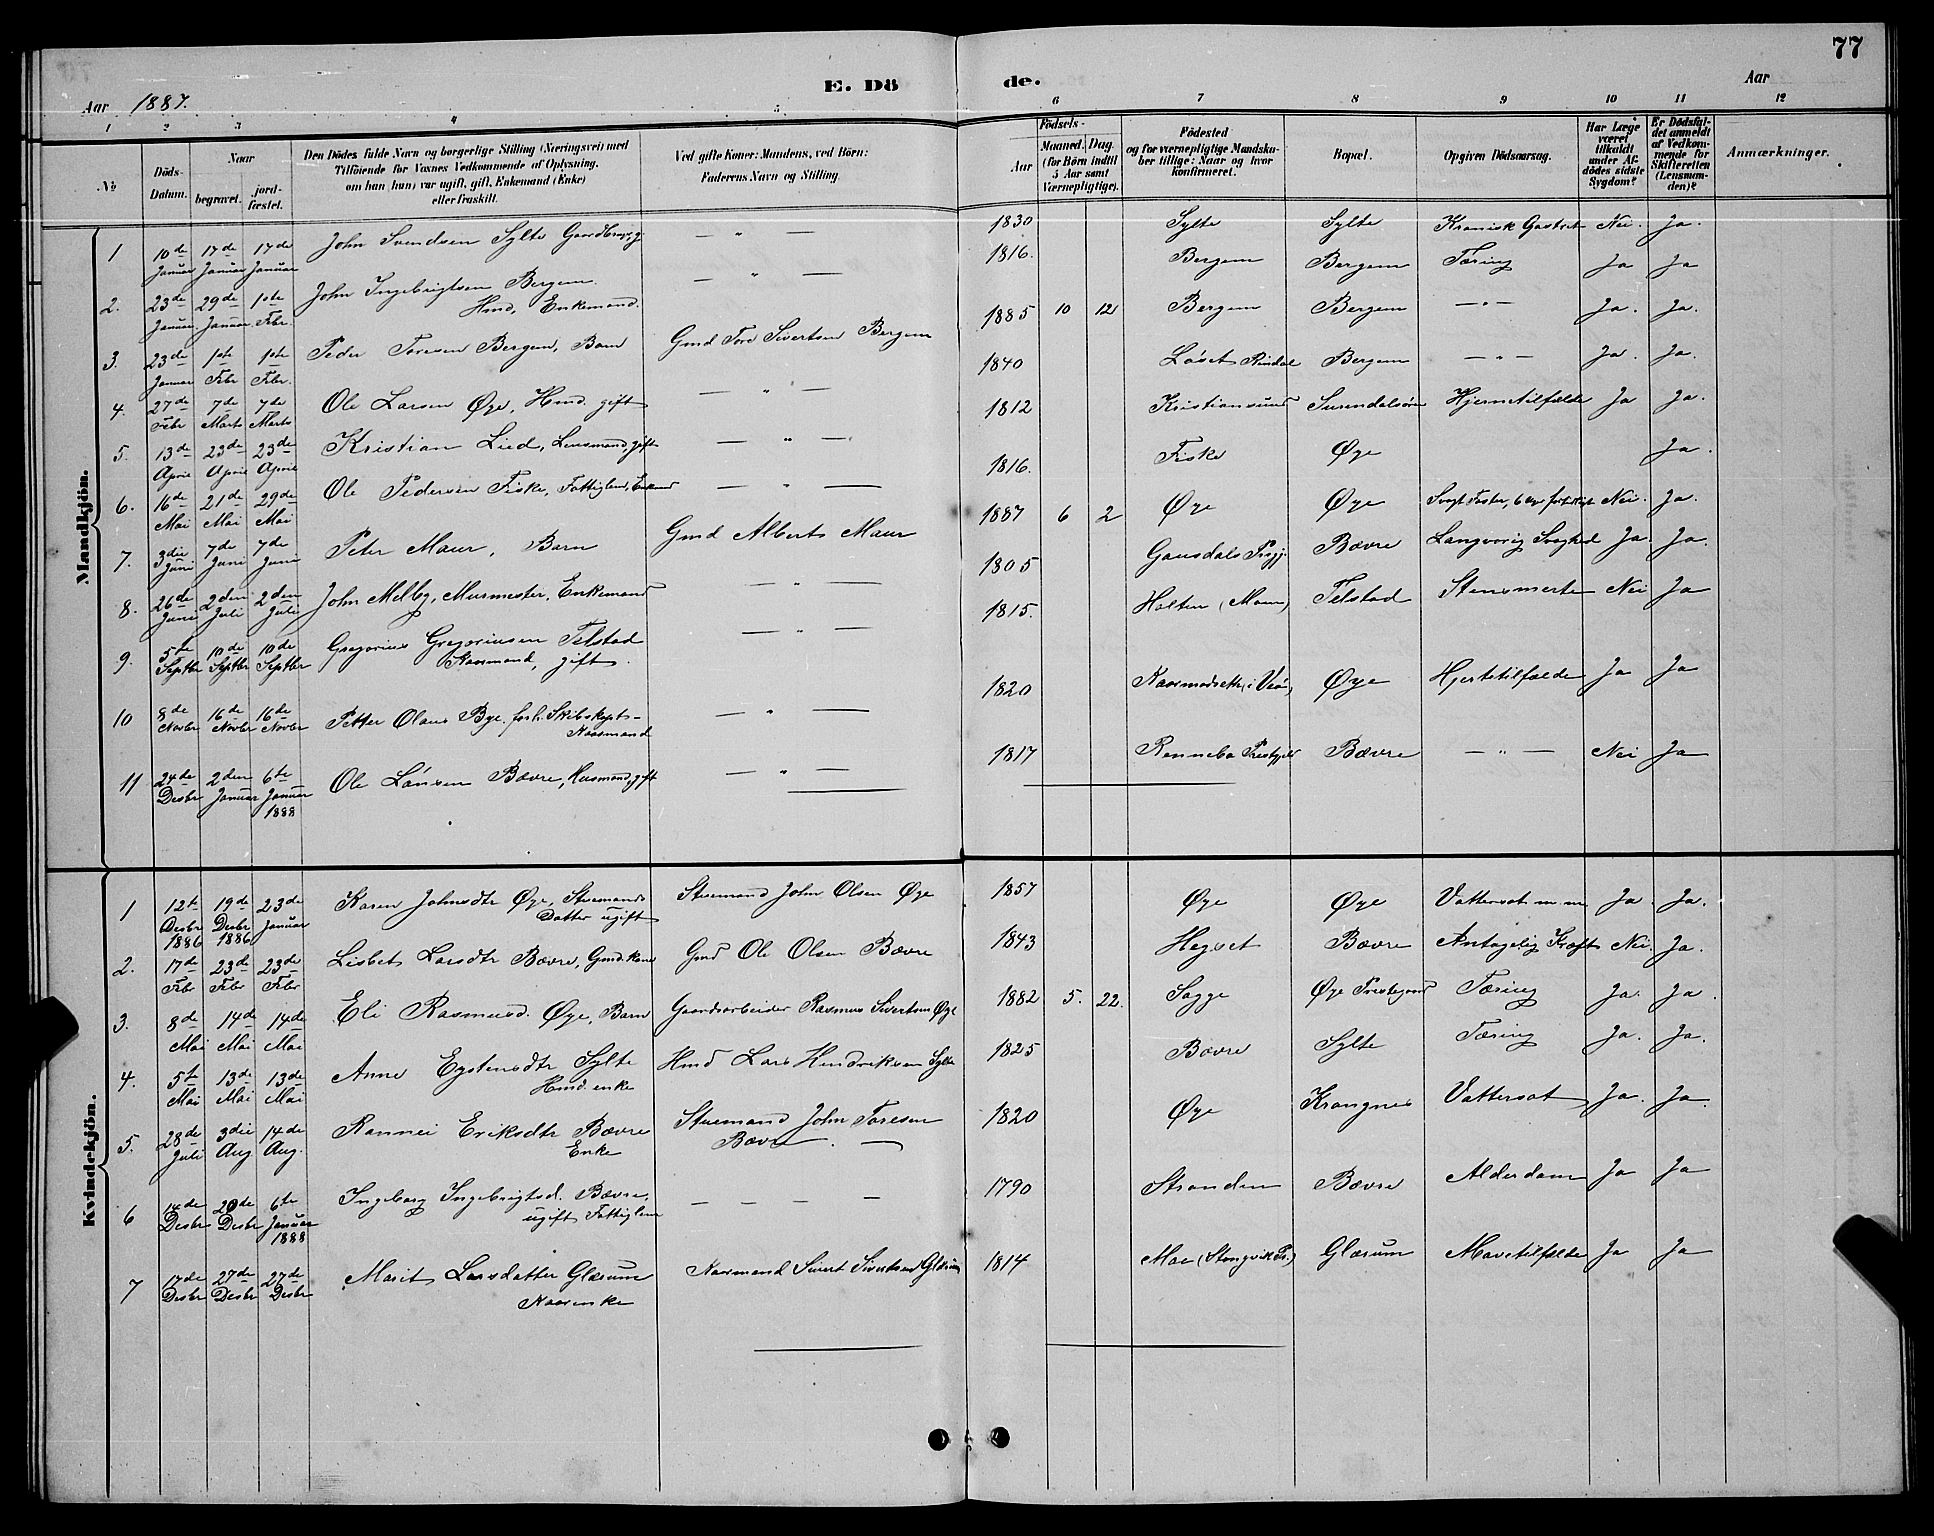 77
E. Dö de.
Aar 1887. Aar
1 2 3 4 5 6 7 8 9 10 11 12
No
Döds-Datum.
Naar
begravet.
jord-fæstet.
Den Dödes fulde Navn og borgerlige Stilling (Næringsvei) med
Tilföiende for Voxnes Vedkommende af Oplysning,
om han (hun) var ugift, gift, Enkemand (Enke)
eller fraskilt.
Ved gifte Koner: Mandens, ved Börn:
Faderens Navn og Stilling.
Födsels-
Aar
Maaned. Dag.
(for Börn indtil
5 Aar samt
Værnepligtige).
Födested
og for værnepligtige Mandska-
ber tillige: Naar og hvor
konfirmeret.
Bopæl.
Opgiven Dödsaarsag.
Har Læge
været
tilkaldt
under Af-
dödes sidste
Sygdom?
Er Dödsfal-
det anmeldt
af Vedkom-
mende for
Skifteretten
(Lensman-
den)?
Anmærkninger.
Mandkjön.
1 10de Januar 17de Januar 17de Januar John Svendsen Sylte Gaardbrug. — " — 1830 Sylte Sylte Kronisk Gastret Nei. Ja.
2. 23de Januar 29de Januar 1ste Febr. John Ingebrigtsen Bergem. Hmd, Enkemand. — " — 1816. Bergem Bergem Tæring Ja Ja
3. 23de Januar 1ste Febr 1ste Febr. Peder Toresen Bergem, Barn Gmd Tore Sivertsen Bergem 1885 10 12 Bergem Bergem — " — Ja. Ja.
4. 27de Febr 7de Marts 7de Marts Ole Larsen Øye, Hmd. gift — " — 1840 Löset Rindal Bergem — " — Ja. Ja.
5. 13de April 23de April 23de April Kristian Lied, Lensmand, gift — " — 1812 Kristiansund Surendalsören Hjernetilfælde Ja Ja.
6. 16de Mai 21de Mai 29de Mai Ole Pedersen Fiske, Fattiglem, Enkmd — " — 1816. Fiske Øye Ja.
7. 3die Juni 7de Juni 7de Juni Peter Maur, Barn Gmd Alberts Maur 1887 6 2 Øye Øye Svagt Foster, 6 Nei. Ja.
8. 26de Juni 2den Juli 2den Juli John Melby, Murmester, Enkemand — " — 1805 Gausdals Prgj. Bævre Langvarig Svaghed Ja. Ja.
9. 5te Septbr 10de Septbr 10de Septbr Gregorius Gregoriusen Telstad Kaarmand, gift. — " — 1815. Holten (Moen) Telstad Stensmerte Nei Ja
10 8de Novbr 16de Novbr 16de Novbr Petter Olaus Bye. forh. Skibskapt- Kaarmand — " — 1820 Øye Hjertetilfælde Ja Ja
11 24de Desbr 2den Januar 6te Januar 1888 Ole Larsen Bævre, Husmand, gift — " — 1817 Rennebo Prestgjeld Bævre — " — Nei Ja
Kvindekjön.
1 12te Desbr 1886 19de Desbr 1886 23de Januar Karen Johnsdtr Øye, Stuemands Datter ugift Stuemand John Olsen Øye 1857 Øye Øye Vattersot m m Ja. Ja.
2. 17de Febr 23de Febr 23de Febr Lisbet Larsdtr Bævre, Gmd. kone Gmd Ole Olsen Bævre 1843 Hegset Bævre Antagelig Kræft Nei. Ja.
3. 8de Mai 14de Mai 14de Mai Eli Rasmusd. Øye, Barn Gaardsarbeider Rasmus Sivertsen Øye 1882 5. 22. Sagge Øye Prestegaard Tæring Ja. Ja.
4. 5te Mai 13de Mai 13de Mai Anne Eystensdtr Sylte Hmd. enke Hmd Lars Hendriksen Sylte 1825 Bævre Sylte Tæring Ja. Ja.
5. 28de Juli 3die Aug 14de Aug. Rannei Eriksdtr Bævre Enke Stuemand John Toresen Bævre. — 1820 Øye Krangnes Vattersot Ja. Ja.
6 14de Desbr 20de Desbr 6te Januar 1888 Ingeborg Ingebrigtsd. Bævre, ugift Fattiglem — — — — 1790 Stranden Bævre Alderdom Ja Ja
7 17de Desbr 27de Desbr 27de Desbr Marit Larsdatter Glærum Kaarenke Kaarmand Sivert Sivertsen Glærum 1814 Moe (Stangvik Pr.) Glærum Mavetilfælde Ja Ja